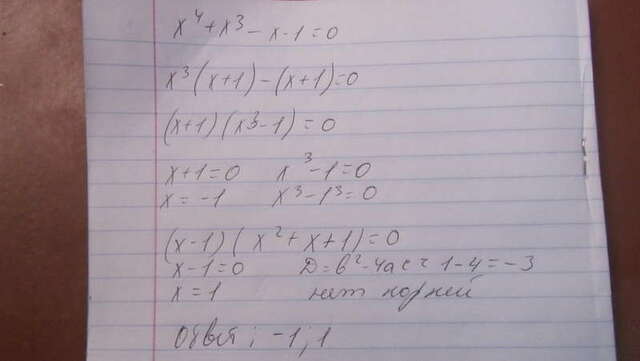 x⁴+x³-x-1=0
x³(x+1)-(x+1)=0
(x+1)(x³-1)=0
x+1=0 x³-1=0
x=-1 x³-1³=0
(x-1)(x²+x+1)=0
x-1=0 D=b²-4ac=1-4=-3
x=1 нет корней
Ответ: -1; 1